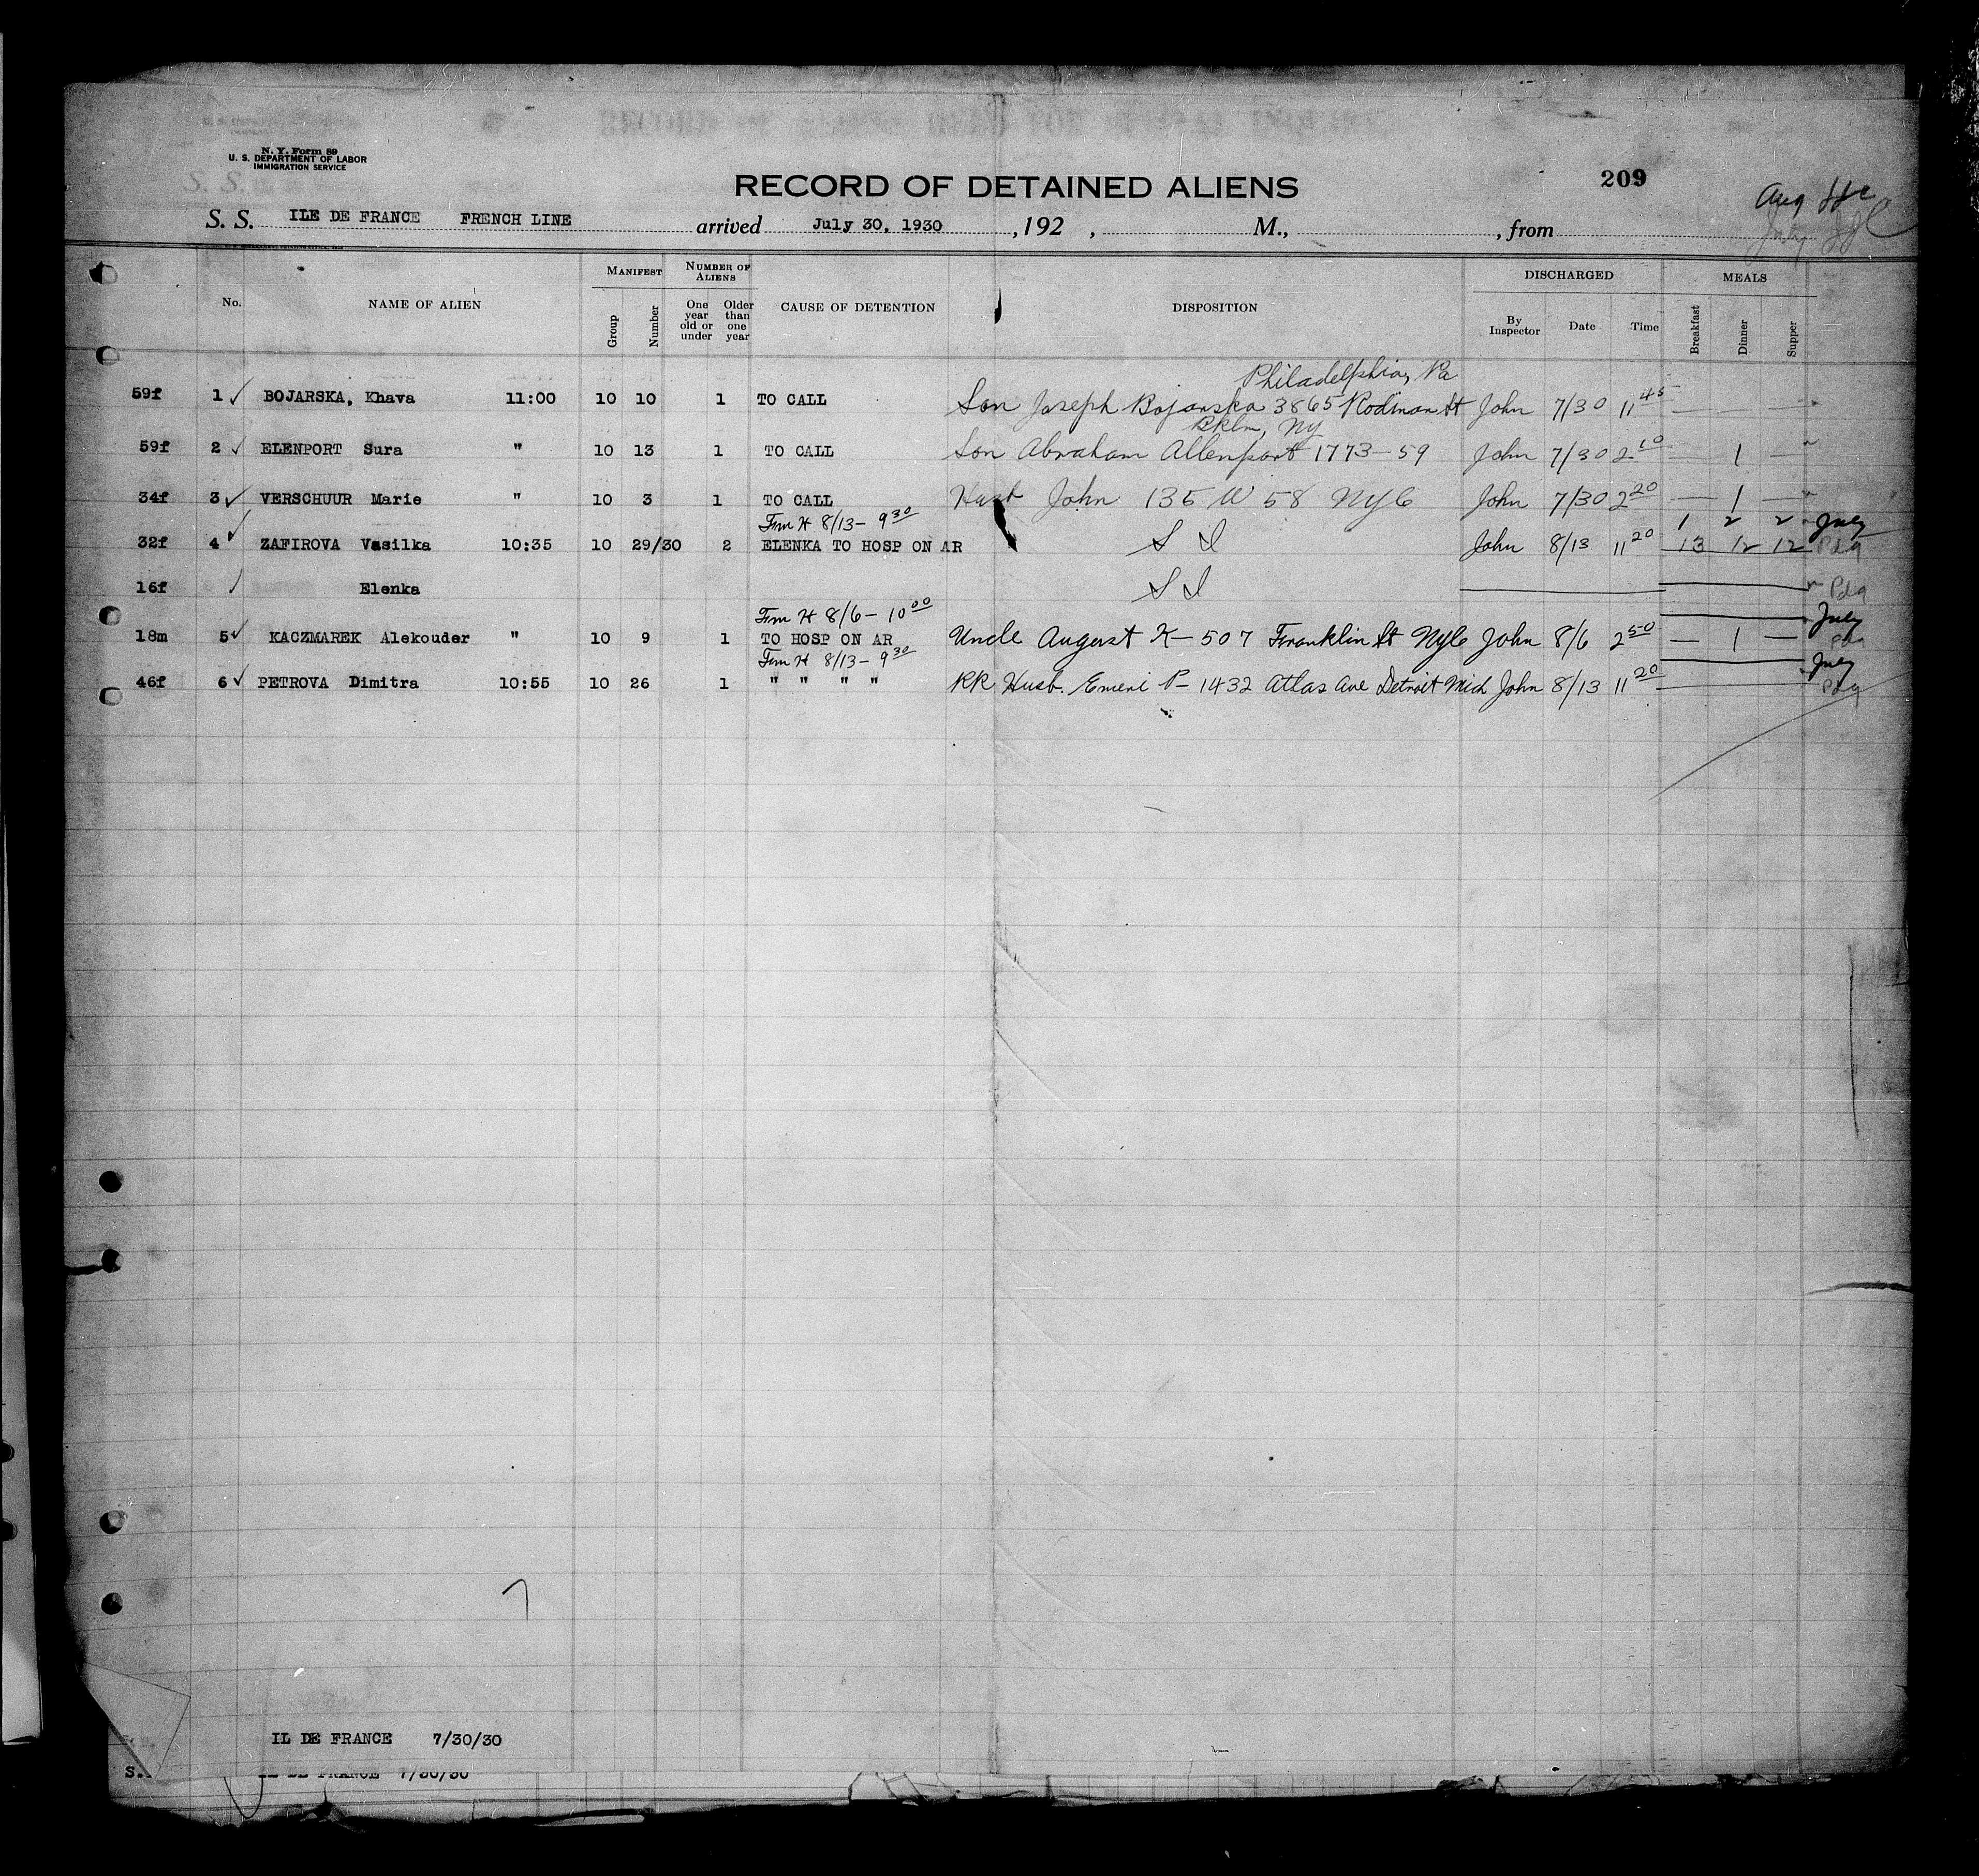 N. Y. Form 89
U. S. DEPARTMENT OF LABOR
IMMIGRATION SERVICE
RECORD OF DETAINED ALIENS
209
Aug
S. S. ILE DE FRANCE FRENCH LINE arrived July 30, 1930 , 192 , M., , from
No. NAME OF ALIEN MANIFEST Group Number NUMBER OF ALIENS One year old or under Older than one year CAUSE OF DETENTION DISPOSITION DISCHARGED By Inspector Date Time MEALS Breakfast Dinner Supper
Philadelphia, Pa
59f 1 ✓ BOJARSKA, Khava 11:00 10 10 1 TO CALL Son Joseph Bojarska 3865 Rodman St John 7/30 11 45
Bkln, NY
59f 2 ✓ ELENPORT Sura " 10 13 1 TO CALL Son Abraham Allenport 1773-59 John 7/30 2 10 — 1 —
34f 3 ✓ VERSCHUUR Marie " 10 3 1 TO CALL Husb John 135 W 58 NYC John 7/30 2 20 — 1 —
Frm H 8/13 - 9 30 1 2 2 July
32f 4 ✓ ZAFIROVA Vasilka 10:35 10 29/30 2 ELENKA TO HOSP ON AR S I John 8/13 11 20 13 12 12 Pdg
16f Elenka S I Pdg
Frm H 8/6 - 10 00 July
18m 5 ✓ KACZMAREK Alekouder " 10 9 1 TO HOSP ON AR Uncle August K - 507 Franklin St NYC John 8/6 2 50 — 1 — Pdg
Frm H 8/13 - 9 30 July
46f 6 ✓ PETROVA Dimitra 10:55 10 26 1 " " " " RR Husb. Emeni P - 1432 Atlas Ave Detroit Mich John 8/13 11 20 Pdg
IL DE FRANCE 7/30/30
S. IL DE FRANCE 7/30/30